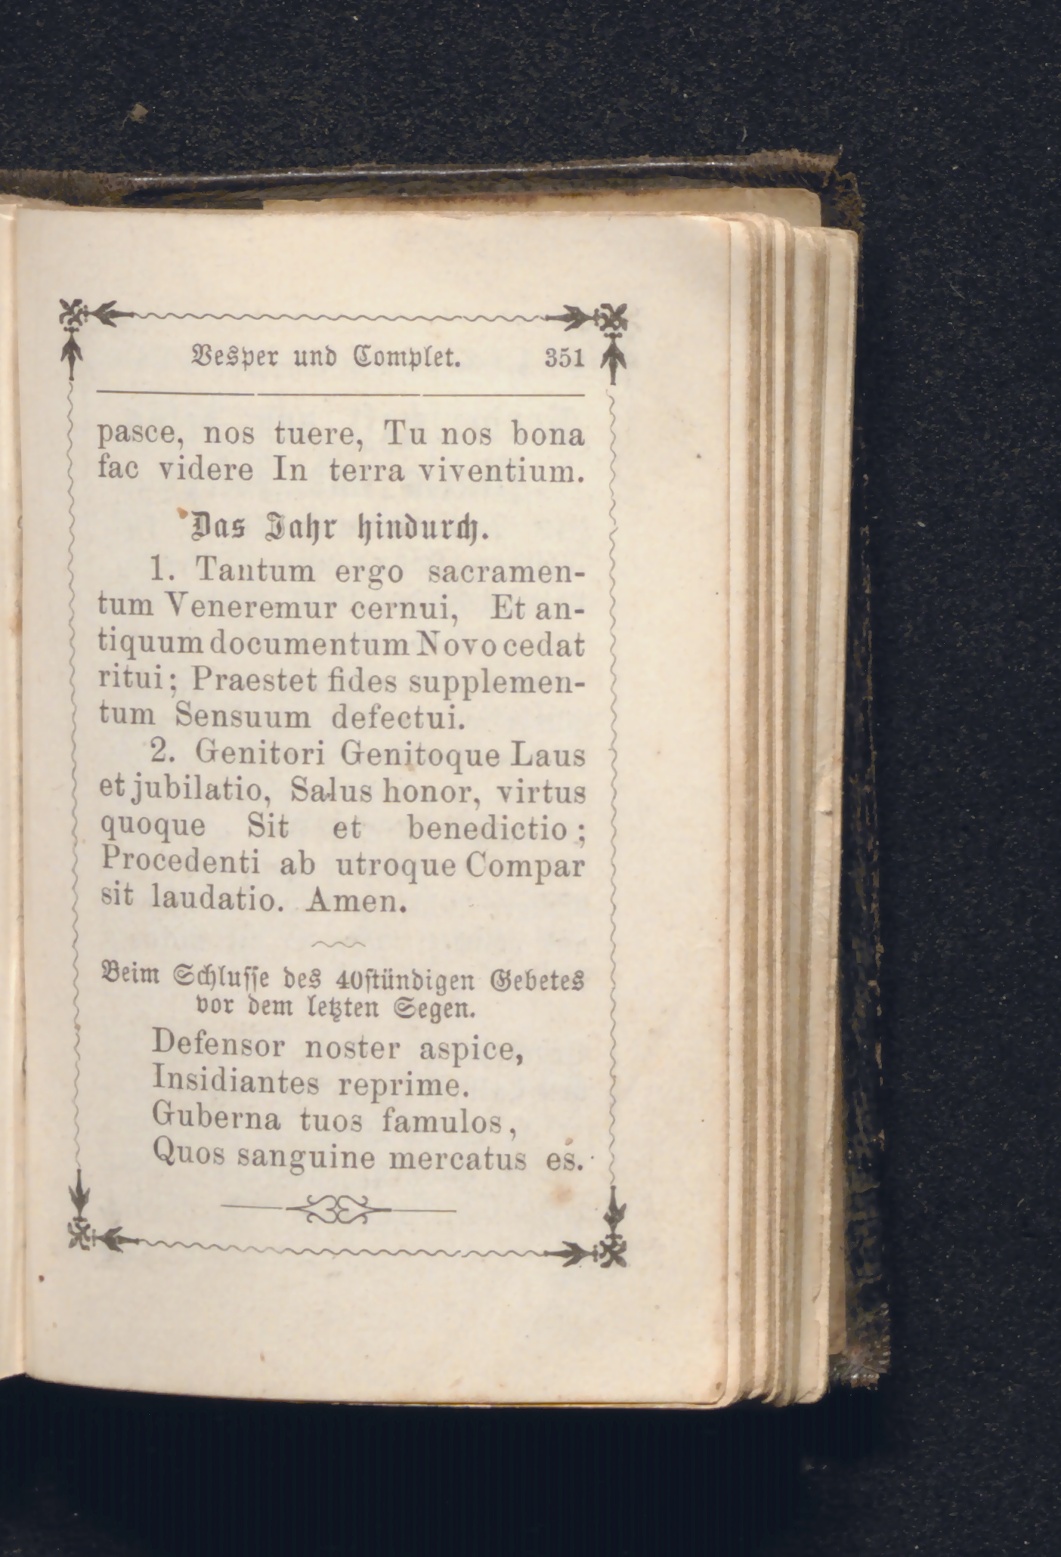 Vesper und Complet. 351
pasce, nos tuere, Tu nos bona
fac videre In terra viventium.
Das Jahr hindurch.
1. Tantum ergo sacramen-
tum Veneremur cernui, Et an-
tiquum documentum Novo cedat
ritui; Praestet fides supplemen-
tum Sensuum defectui.
2. Genitori Genitoque Laus
et jubilatio, Salus honor, virtus
quoque Sit et benedictio;
Procedenti ab utroque Compar
sit laudatio. Amen.
Beim Schlusse des 40stündigen Gebetes
vor dem letzten Segen.
Defensor noster aspice,
Insidiantes reprime.
Guberna tuos famulos,
Quos sanguine mercatus es.